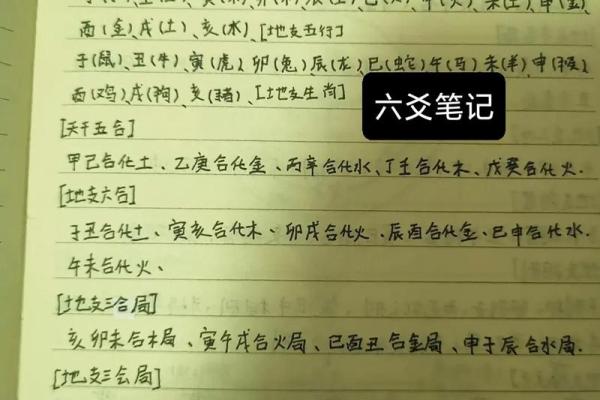 酉(金)、戌(土)、亥(水)、[地支五行]
子(鼠)、丑(牛)、寅(虎)、卯(兔)、辰(龙)、巳(蛇)、午(马)、未(羊)、申(猴)、
酉(鸡)、戌(狗)、亥(猪)、[地支生肖]
六爻笔记
[天干五合]
甲己合化土、乙庚合化金、丙辛合化水、丁壬合化木、戊癸合化火.
[地支六合]
子丑合化土、寅亥合化木、卯戌合化火、辰酉合化金、巳申合化水.
午未合化火、
[地支三合局]
亥卯未合木局、寅午戌合火局、巳酉丑合金局、申子辰合水局.
[地支三会局]